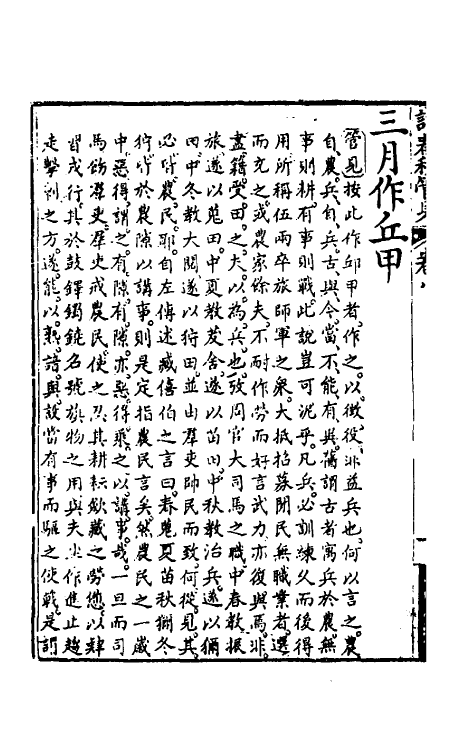 讀春秋管見 卷八
三月作丘甲
管見按此作邱甲者作之以徴役非益兵也何以言之農
自農兵自兵古與今當不能有異儒謂古者寓兵於農無
事則耕有事則戰此說豈可泥乎凡兵必訓練久而後得
用所稱伍兩卒旅師軍之衆大抵招募閒民無職業者選
而充之或農家餘夫不耐作勞而好言武力亦復與焉非
盡籍受田之夫以為兵也攷周官大司馬之職中春教振
旅遂以蒐田中夏教茇舍遂以苗田中秋教治兵遂以獮
田中冬教大閱遂以狩田並由羣吏帥民而致何從見其
必皆農民耶自左傳述臧僖伯之言曰春蒐夏苗秋獮冬
狩皆於農隙以講事則是定指農民言矣然農民之一歲
中惡得謂之有隙有隙亦惡得乘之以講事哉一旦而司
馬飭羣吏羣吏戒農民使之忍其耕耘斂藏之勞憊以肄
習戎行其於鼓鐸鐲鐃名號旗物之用與夫坐作進止趨
走擊刺之方遂能以熟諳與設當有事而驅之使戰是謂